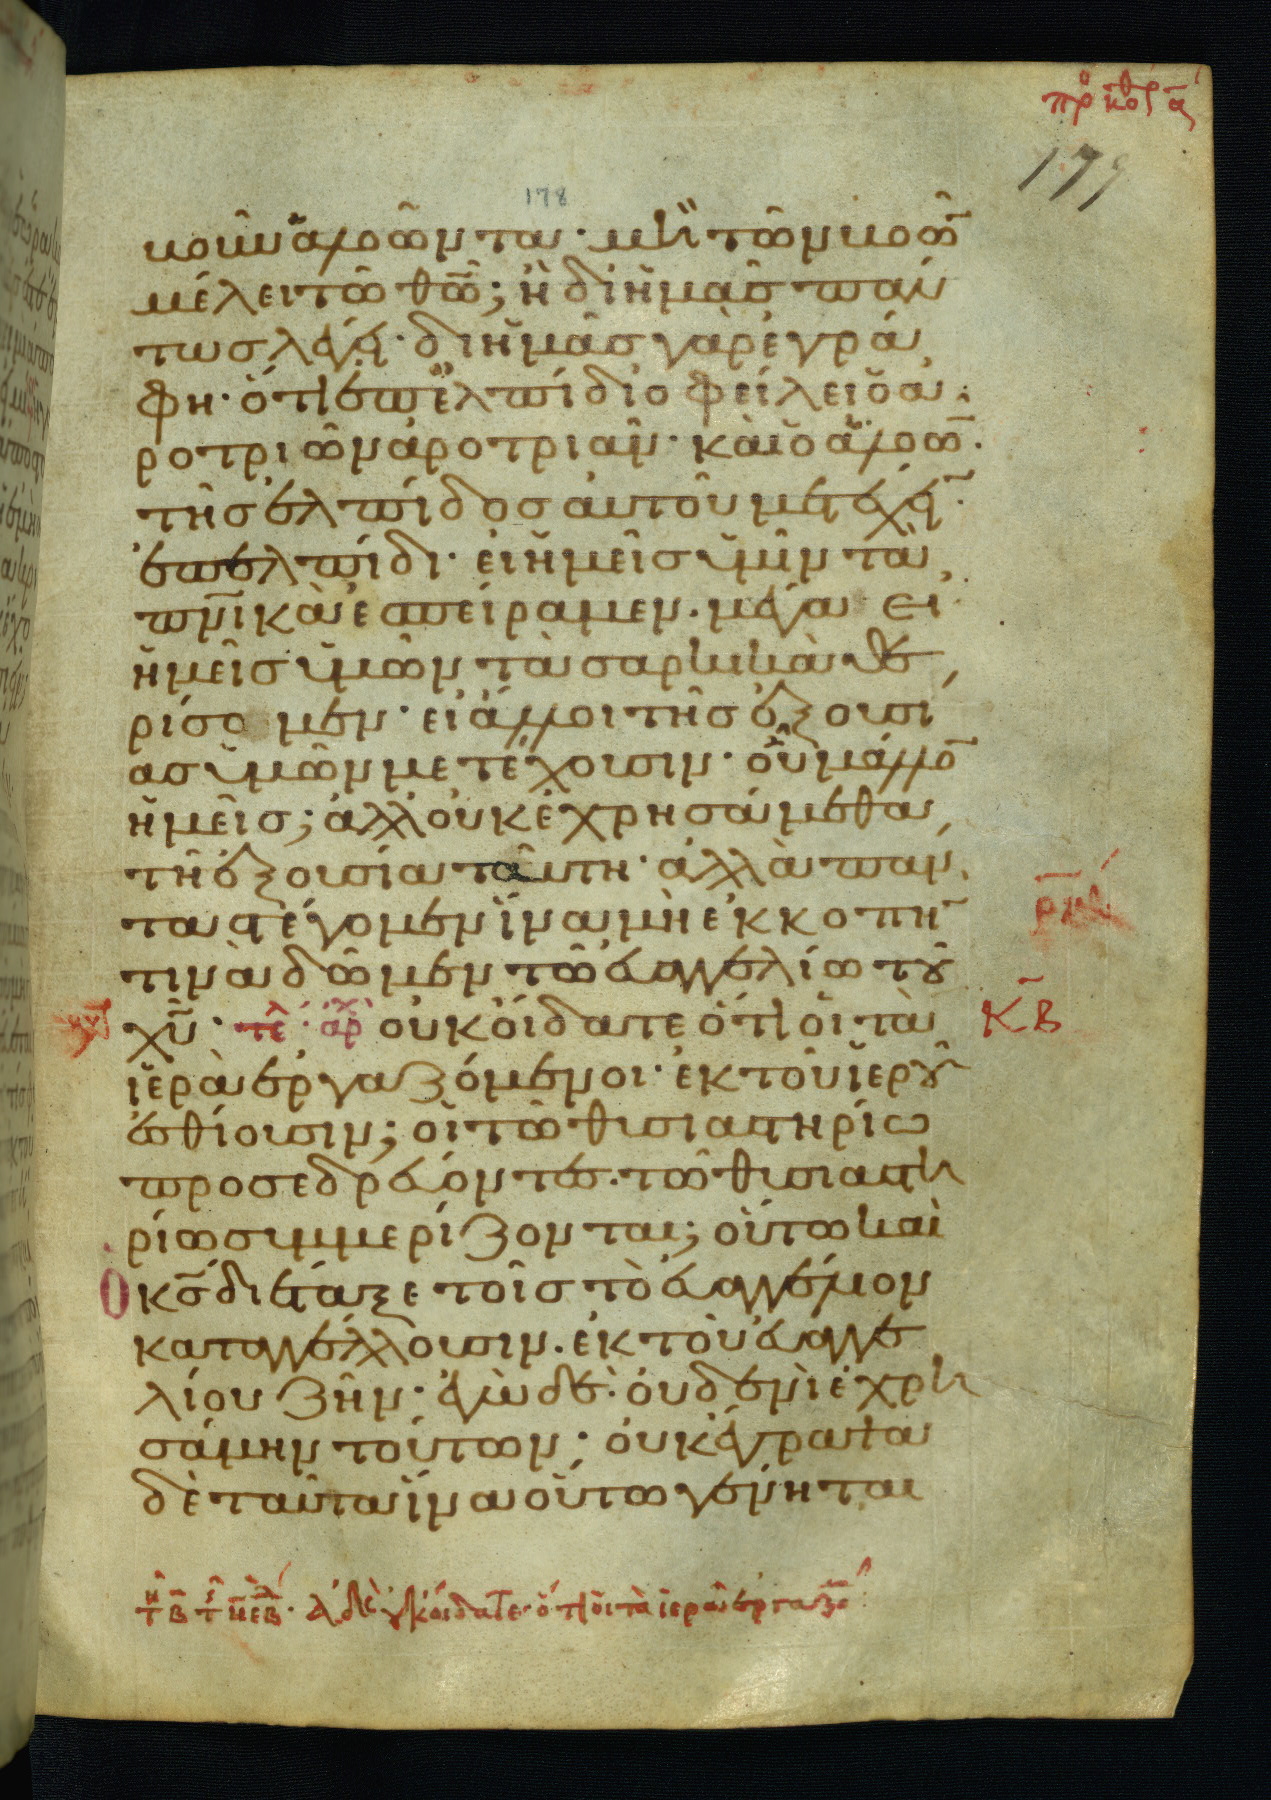 πρ κορ α
179
178
κοιν ἀλοῶντα· μὴ τῶν βοῶ
μέλει τῶ θῶ; ἢ δι ἡμᾶς παν
τως λέγει· δι ἡμᾶς γὰρ ἐγρά
φη· ὅτι ἐπ ἐλπίδι ὀφείλει ὁ ἀ
ροτριῶν ἀροτριᾶν· καὶ ὁ ἀλοῶ
τῆς ἐλπίδος αὐτοῦ μετέχει
ἐπ ἐλπίδι· εἰ ἡμεῖς ὑμῖν τὰ
πνικὰ ἐσπείραμεν. μέγα εἰ
ἡμεῖς ὑμῶν τὰ σαρκικὰ θε
ρίσομεν· εἰ ἄλλοι τῆς ἐξουσί
ας ὑμῶν μετέχουσιν· οὐ μᾶλλο
ἡμεῖς; ἀλλ οὐκ ἐχρησάμεθα
τῆ ἐξουσία ταύτη· ἀλλὰ παν
τα στέγομεν ἵνα μὴ ἐκκοπὴ
τινα δῶμεν τῶ εὐαγγελίω τοῦ
χῦ· τε· αρ οὐκ οἴδατε ὅτι οἱ τὰ
κβ
ἱερὰ ἐργαζόμενοι· ἐκ τοῦ ἱεροῦ
ἐσθίουσιν; οἱ τῶ θυσιαστηρίω
προσεδρεύοντες· τῶ θυσιαστη
ρίω συμμερίζονται; οὕτω καὶ
ὁ κς διέταξε τοῖς τὸ εὐαγγέλιον
καταγγέλλουσιν. ἐκ τοῦ εὐαγγε
λίου ζῆν· ἐγὼ δὲ· οὐδενὶ ἐχρη
σάμην τούτων· οὐκ ἔγραψα
δὲ ταῦτα ἵνα οὕτω γένηται
ἀδε οὐκ οἴδατε· ὅτι οἱ τὰ ἱερὰ ἐργαζο